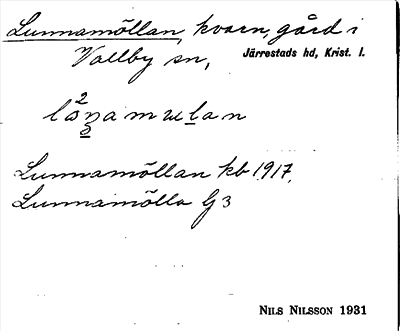 Lunnamöllan, kvarn, gård i
Vallby sn, Järrestads hd, Krist. l.
Lunnamöllan kb 1917.
Lunnamölla G 3
NILS NILSSON 1931